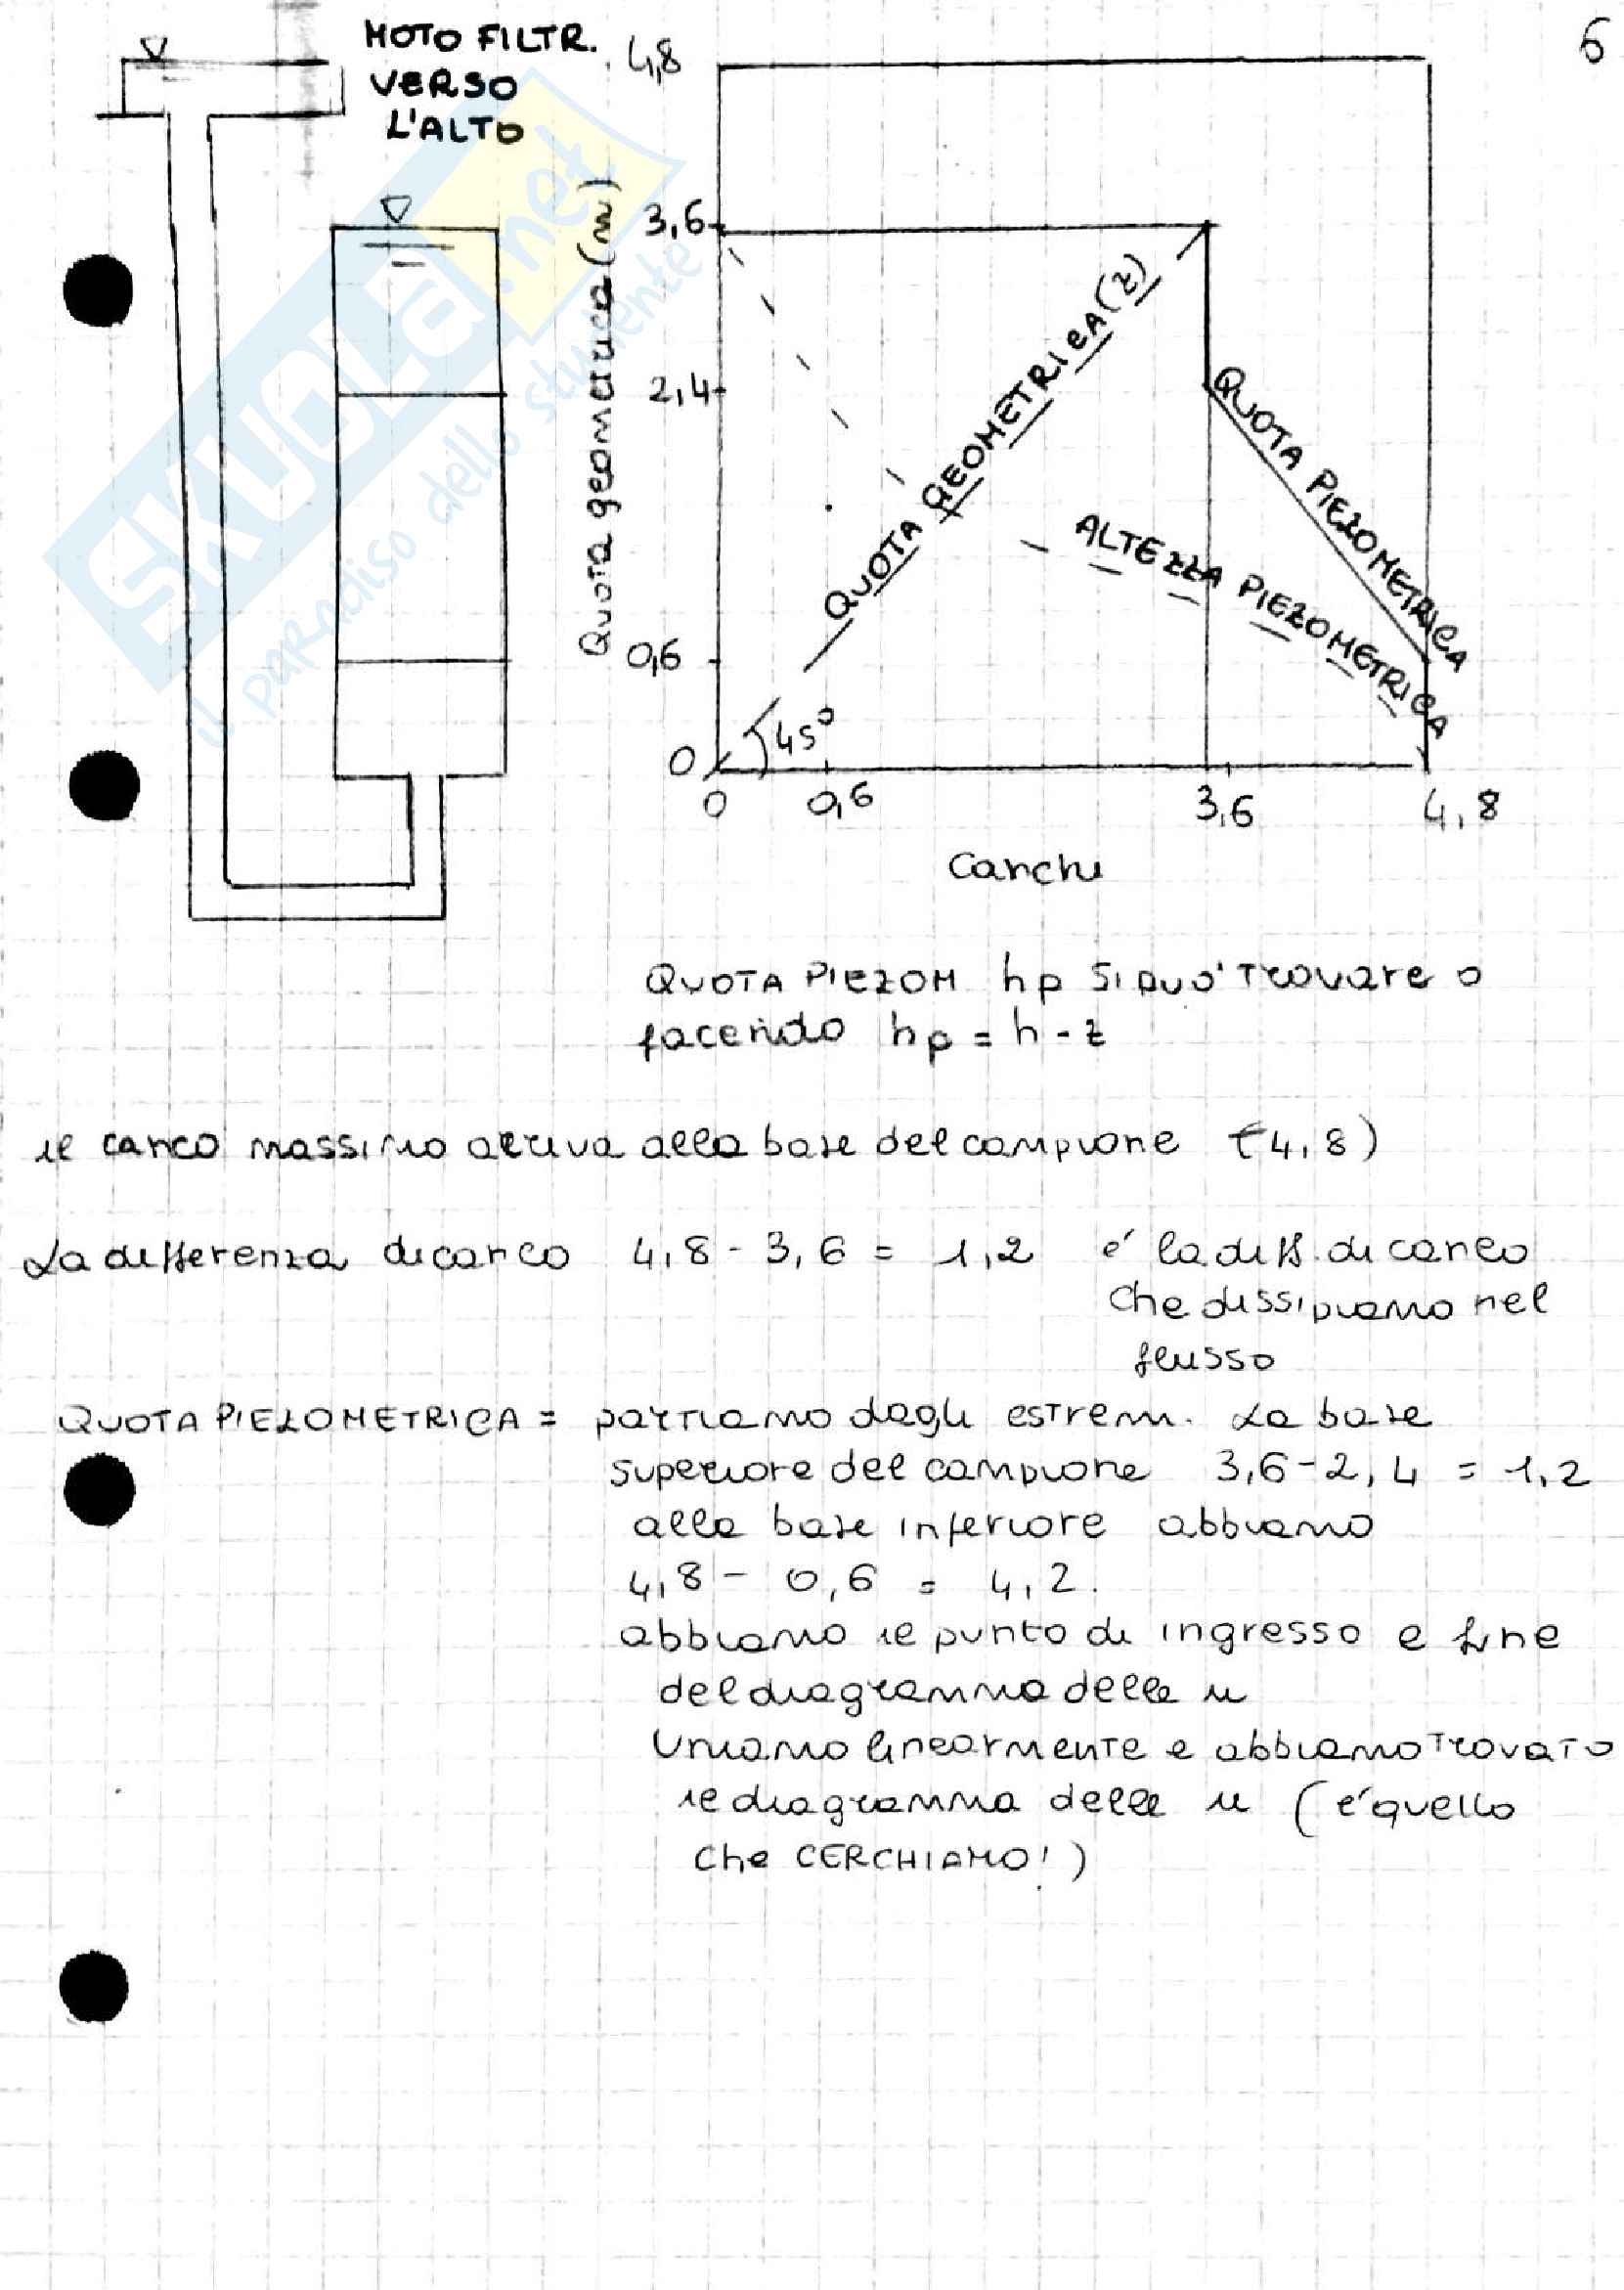 6
MOTO FILTR.
VERSO
L'ALTO
SKUOLA.net
il paradiso dello studente
Quota geometrica (m)
4,8
3,6
2,4
0,6
0
45°
QUOTA GEOMETRICA (z)
QUOTA PIEZOMETRICA
ALTEZZA PIEZOMETRICA
0 0,6 3,6 4,8
Carichi
QUOTA PIEZOM hp si può trovare o
facendo hp = h - z
il carico massimo arriva alla base del campione (4,8)
La differenza di carico 4,8 - 3,6 = 1,2 é la diff. di carico
che dissipiamo nel
flusso
QUOTA PIEZOMETRICA = partiamo dagli estremi. La base
superiore del campione 3,6 - 2,4 = 1,2
alla base inferiore abbiamo
4,8 - 0,6 = 4,2.
abbiamo il punto di ingresso e fine
del diagramma delle u
Uniamo linearmente e abbiamo trovato
il diagramma delle u (é quello
che CERCHIAMO!)